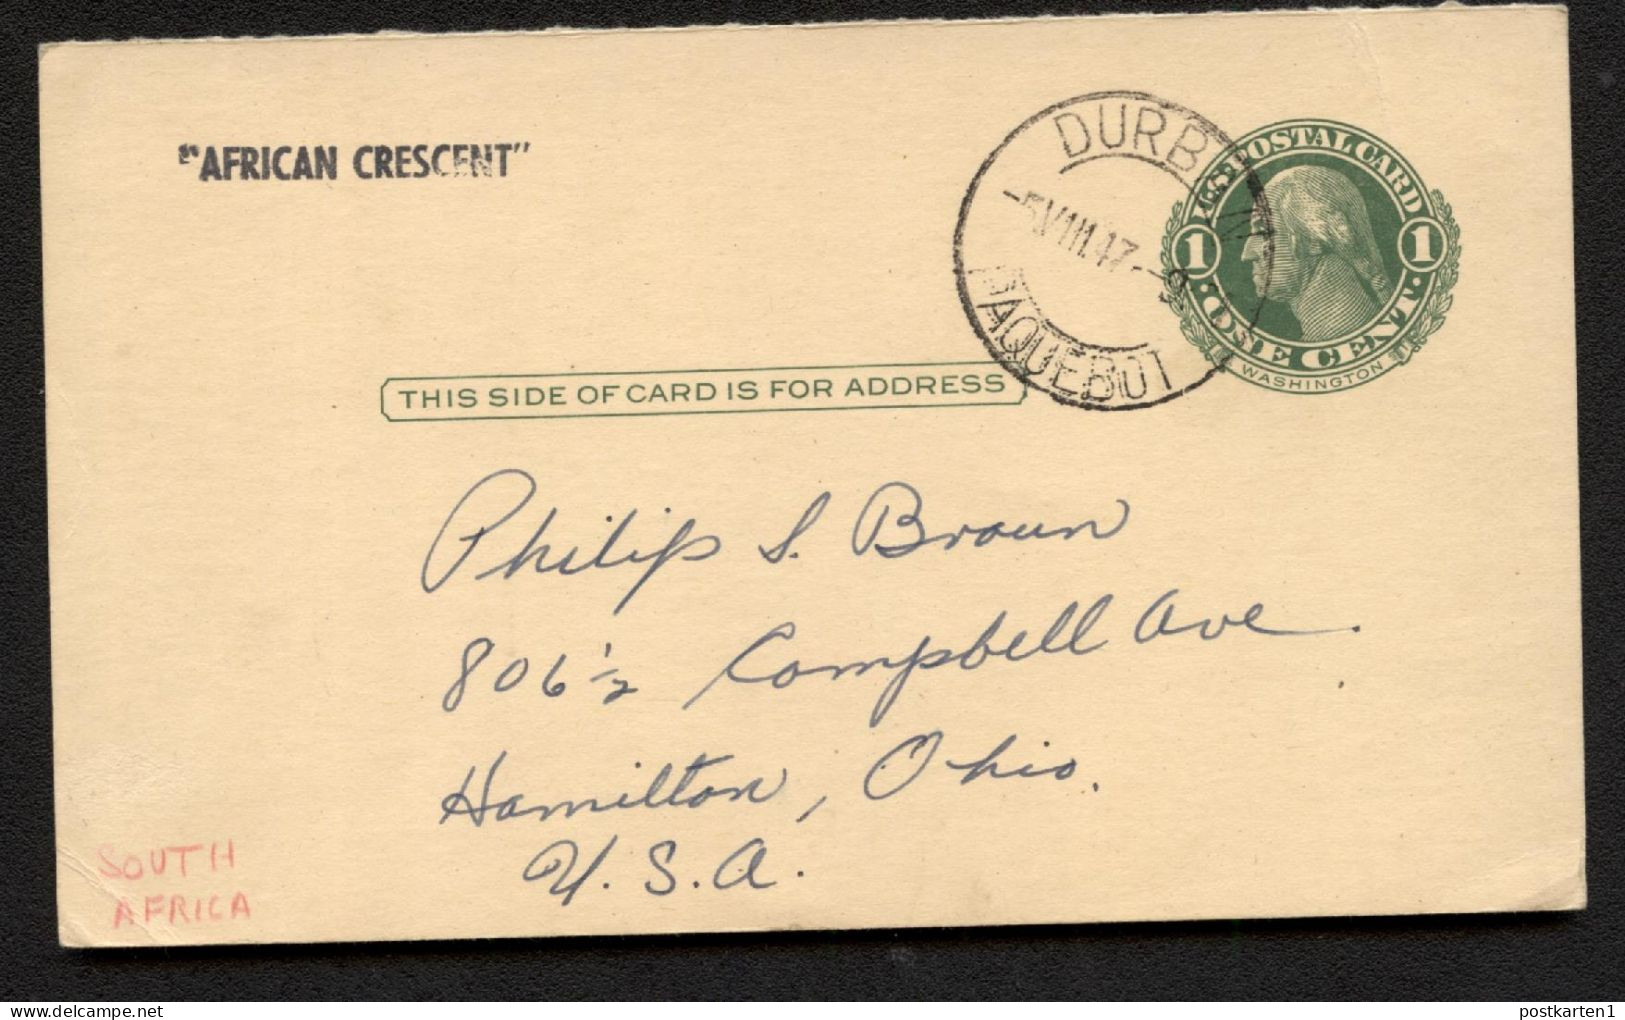 "AFRICAN CRESCENT"
DURB
-5.VIII.47.--9
PAQUEBOT
U.S. POSTAL CARD
1 1
· ONE CENT ·
WASHINGTON
THIS SIDE OF CARD IS FOR ADDRESS
Philip S. Braun
806 1/2 Campbell Ave.
Hamilton, Ohio.
U.S.A.
SOUTH
AFRICA
postkarten1